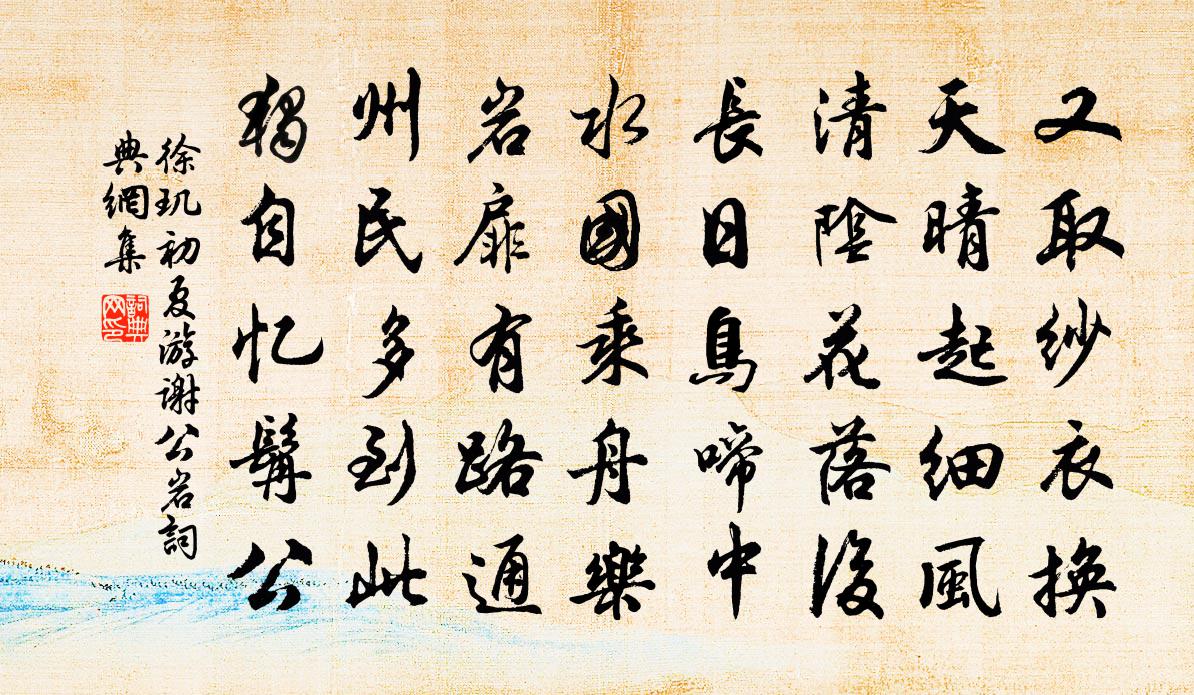 又取紗衣換
天晴起細風
清陰花落後
長日鳥啼中
水國乘舟樂
岩扉有路通
州民多到此
獨自忆髯公
徐玑初夏游謝公岩詞
典網集
詞典
网印